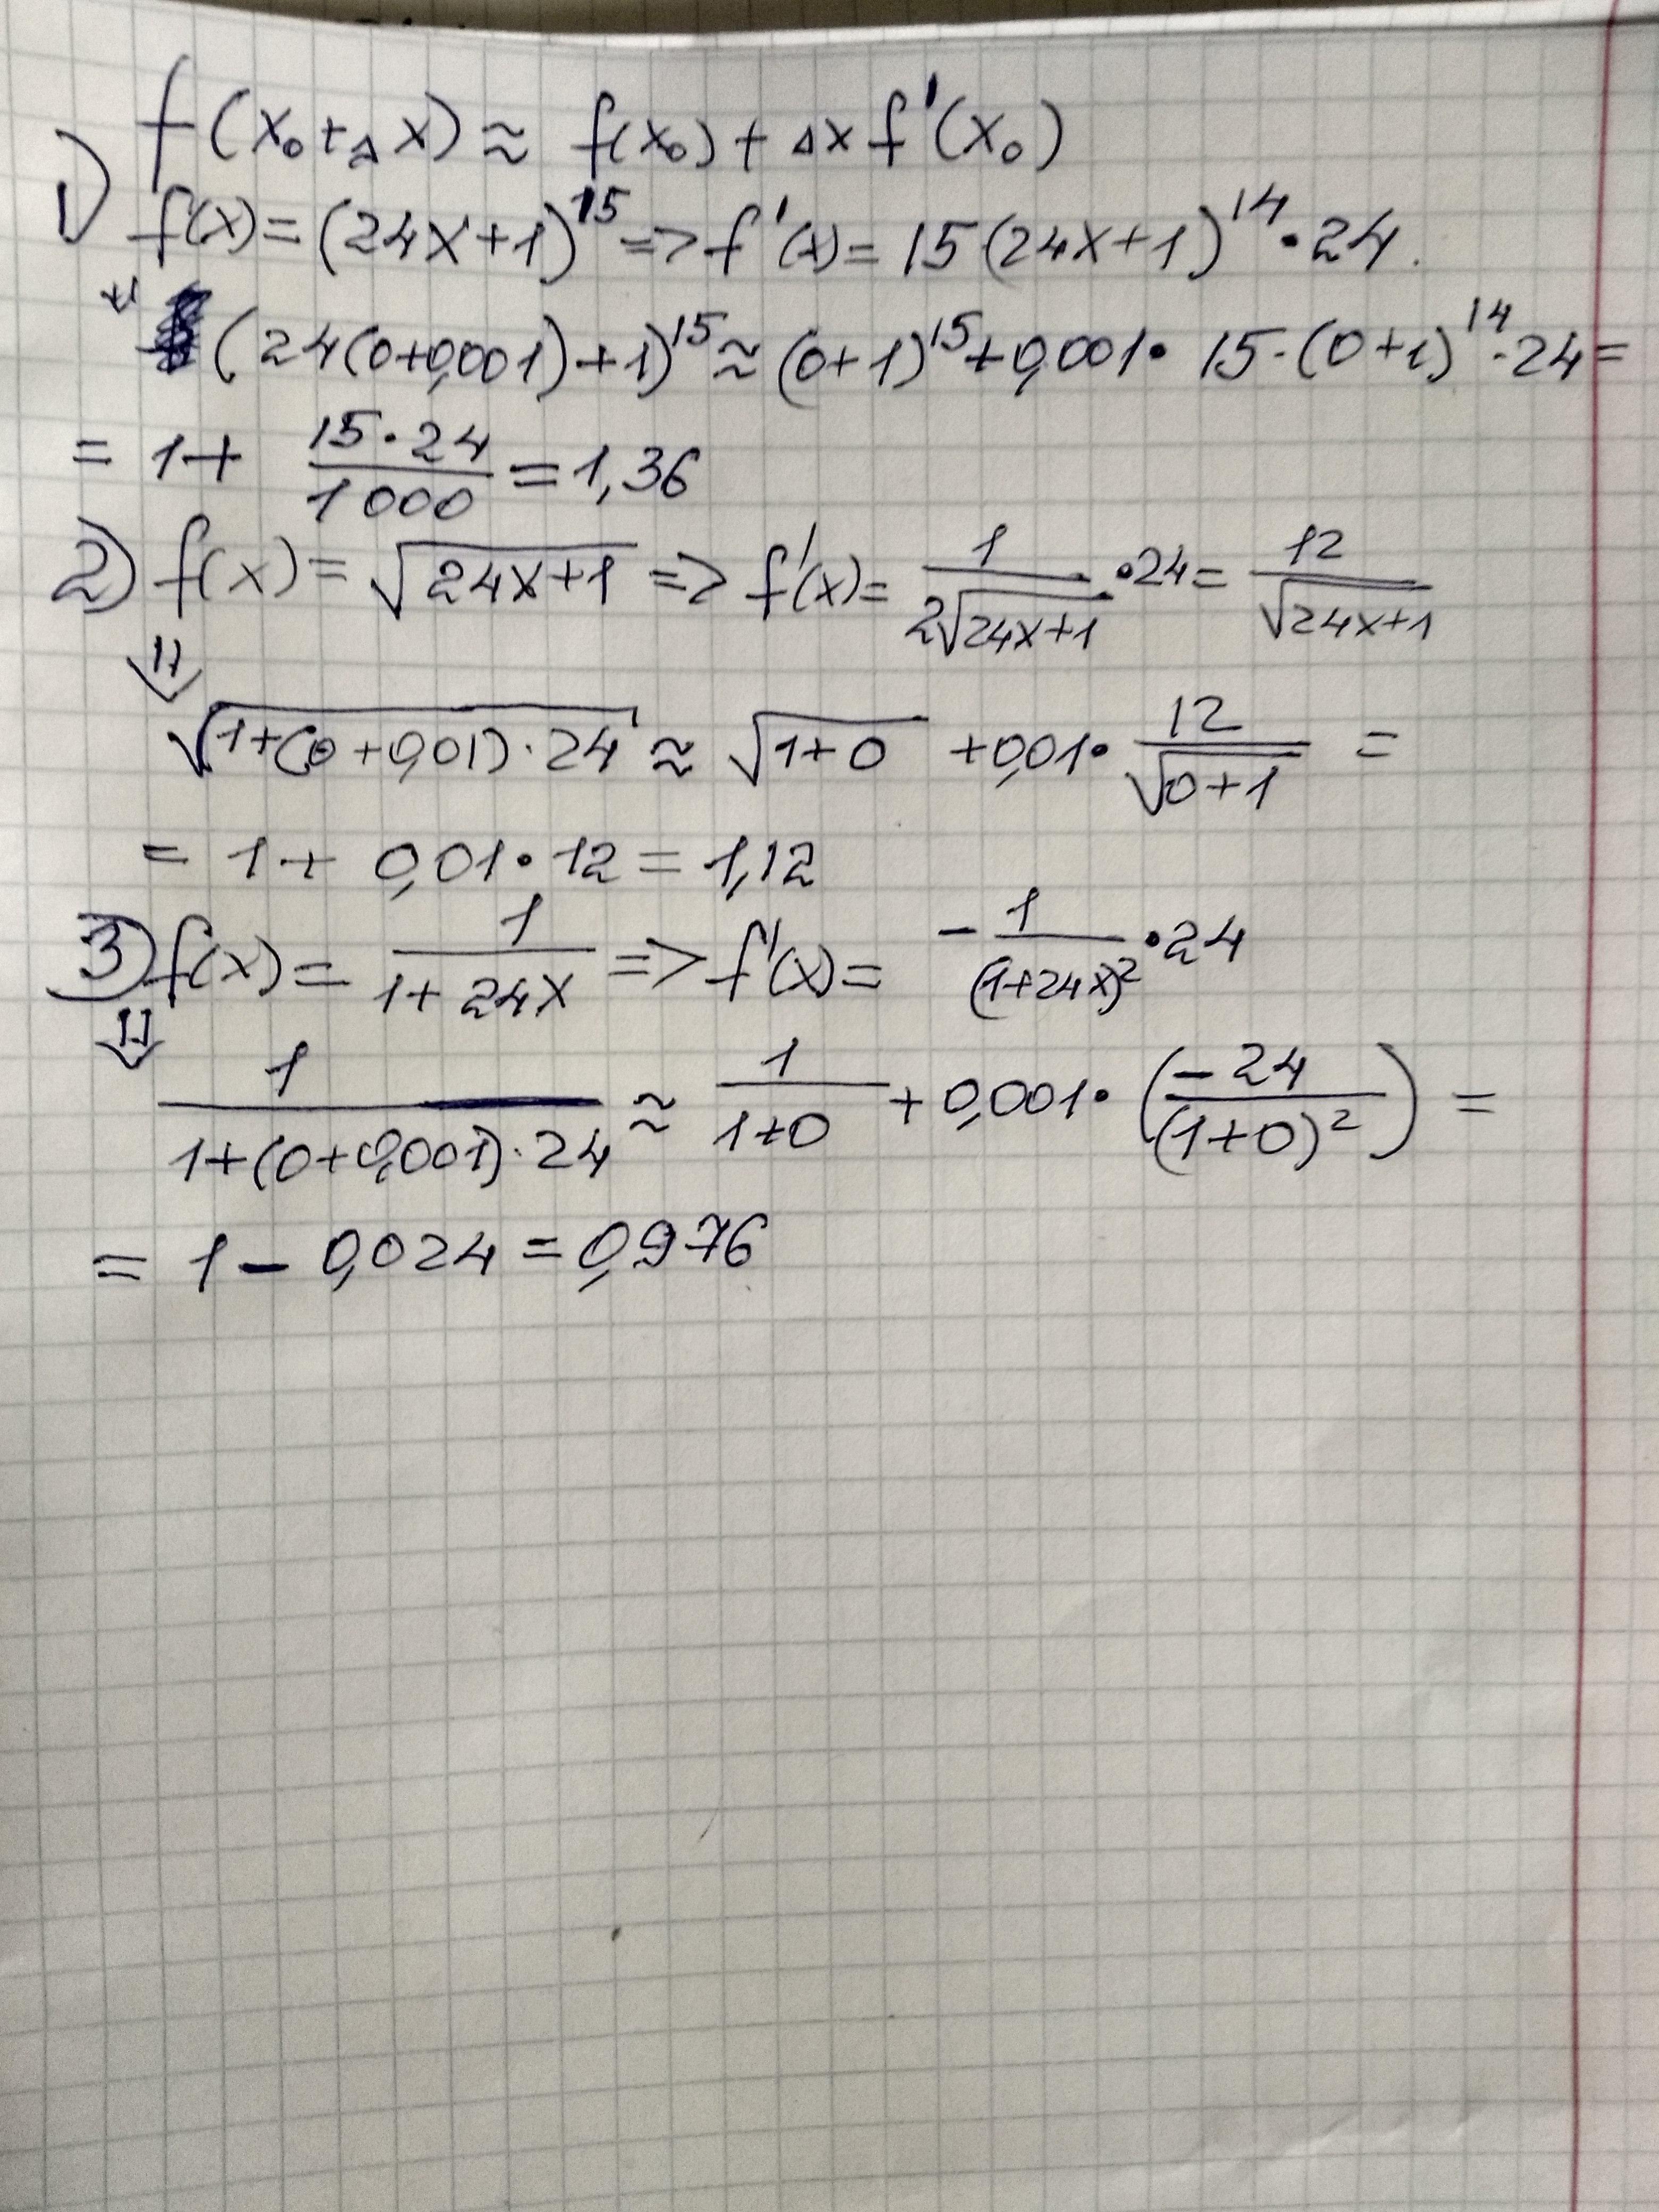 f(x₀+Δx) ≈ f(x₀) + Δx f'(x₀)
1) f(x) = (24x+1)¹⁵ => f'(x) = 15(24x+1)¹⁴ · 24.
(24(0+0,001)+1)¹⁵ ≈ (0+1)¹⁵ + 0,001 · 15 · (0+1)¹⁴ · 24 =
= 1 + (15·24)/1000 = 1,36
2) f(x) = √(24x+1) => f'(x) = 1/(2√(24x+1)) · 24 = 12/√(24x+1)
⇓
√(1+(0+0,01)·24) ≈ √(1+0) + 0,01 · 12/√(0+1) =
= 1 + 0,01 · 12 = 1,12
3) f(x) = 1/(1+24x) => f'(x) = -1/(1+24x)² · 24
⇓
1/(1+(0+0,001)·24) ≈ 1/(1+0) + 0,001 · (-24/(1+0)²) =
= 1 - 0,024 = 0,976